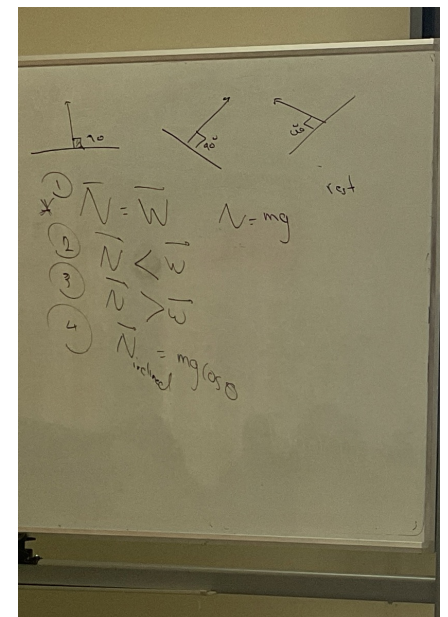 90° 90° 90°
rest
* ① N̄ = W̄ N = mg
② N̄ < W̄
③ N̄ > W̄
④ N̄ inclined = mg cos θ